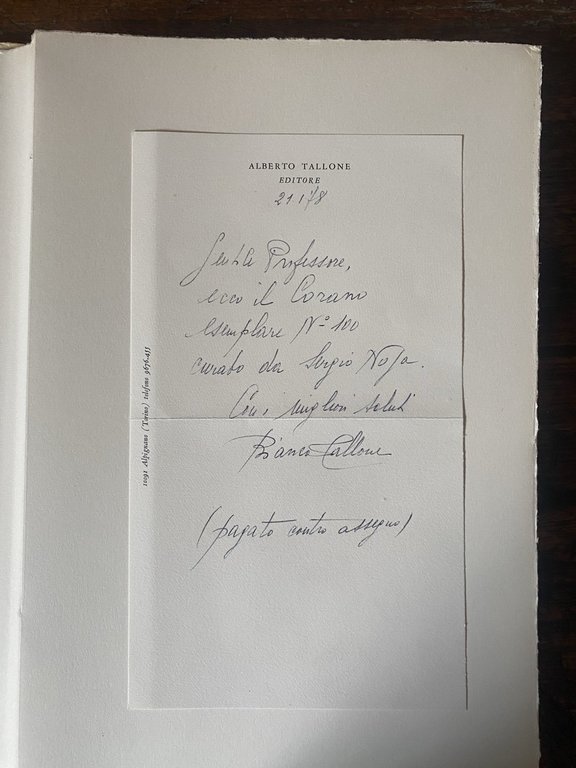 ALBERTO TALLONE
EDITORE
21 1 78
Gentile Professore,
ecco il Corano
esemplare N° 100
curato da Sergio Noja.
Con i migliori saluti
Bianca Tallone
(pagato contro assegno)
11091 Alpignano (Torino) telefono 9676.455